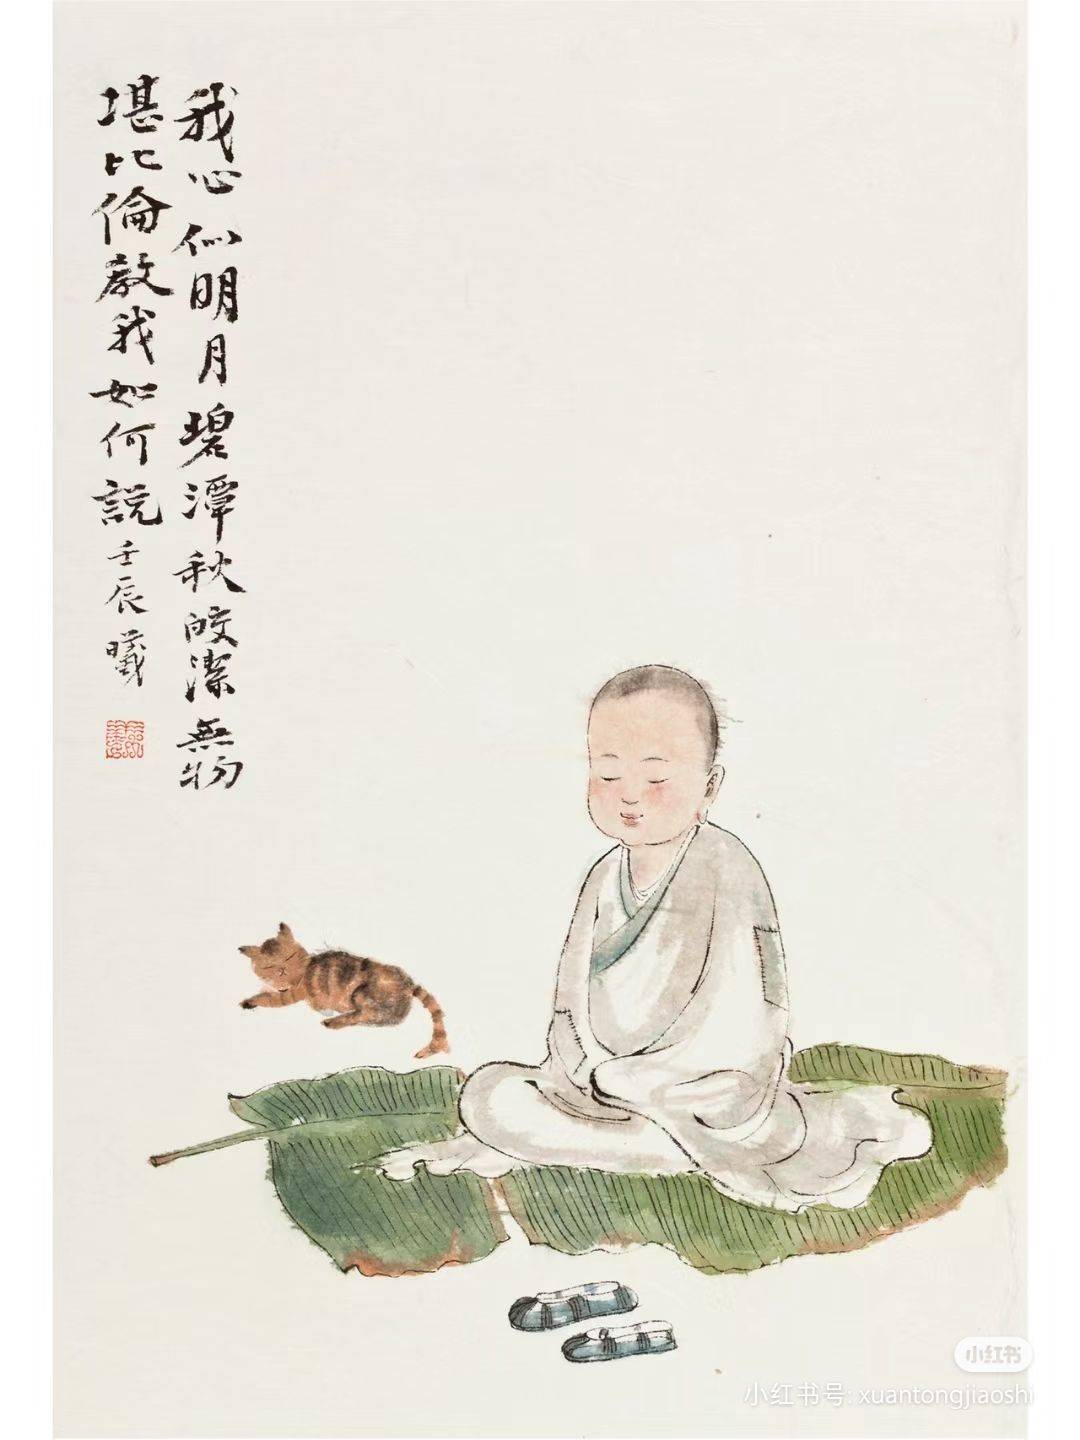 我心似明月碧潭秋皎潔無物
堪比倫教我如何說
壬辰曦
小红书
小红书号: xuantongjiaoshi